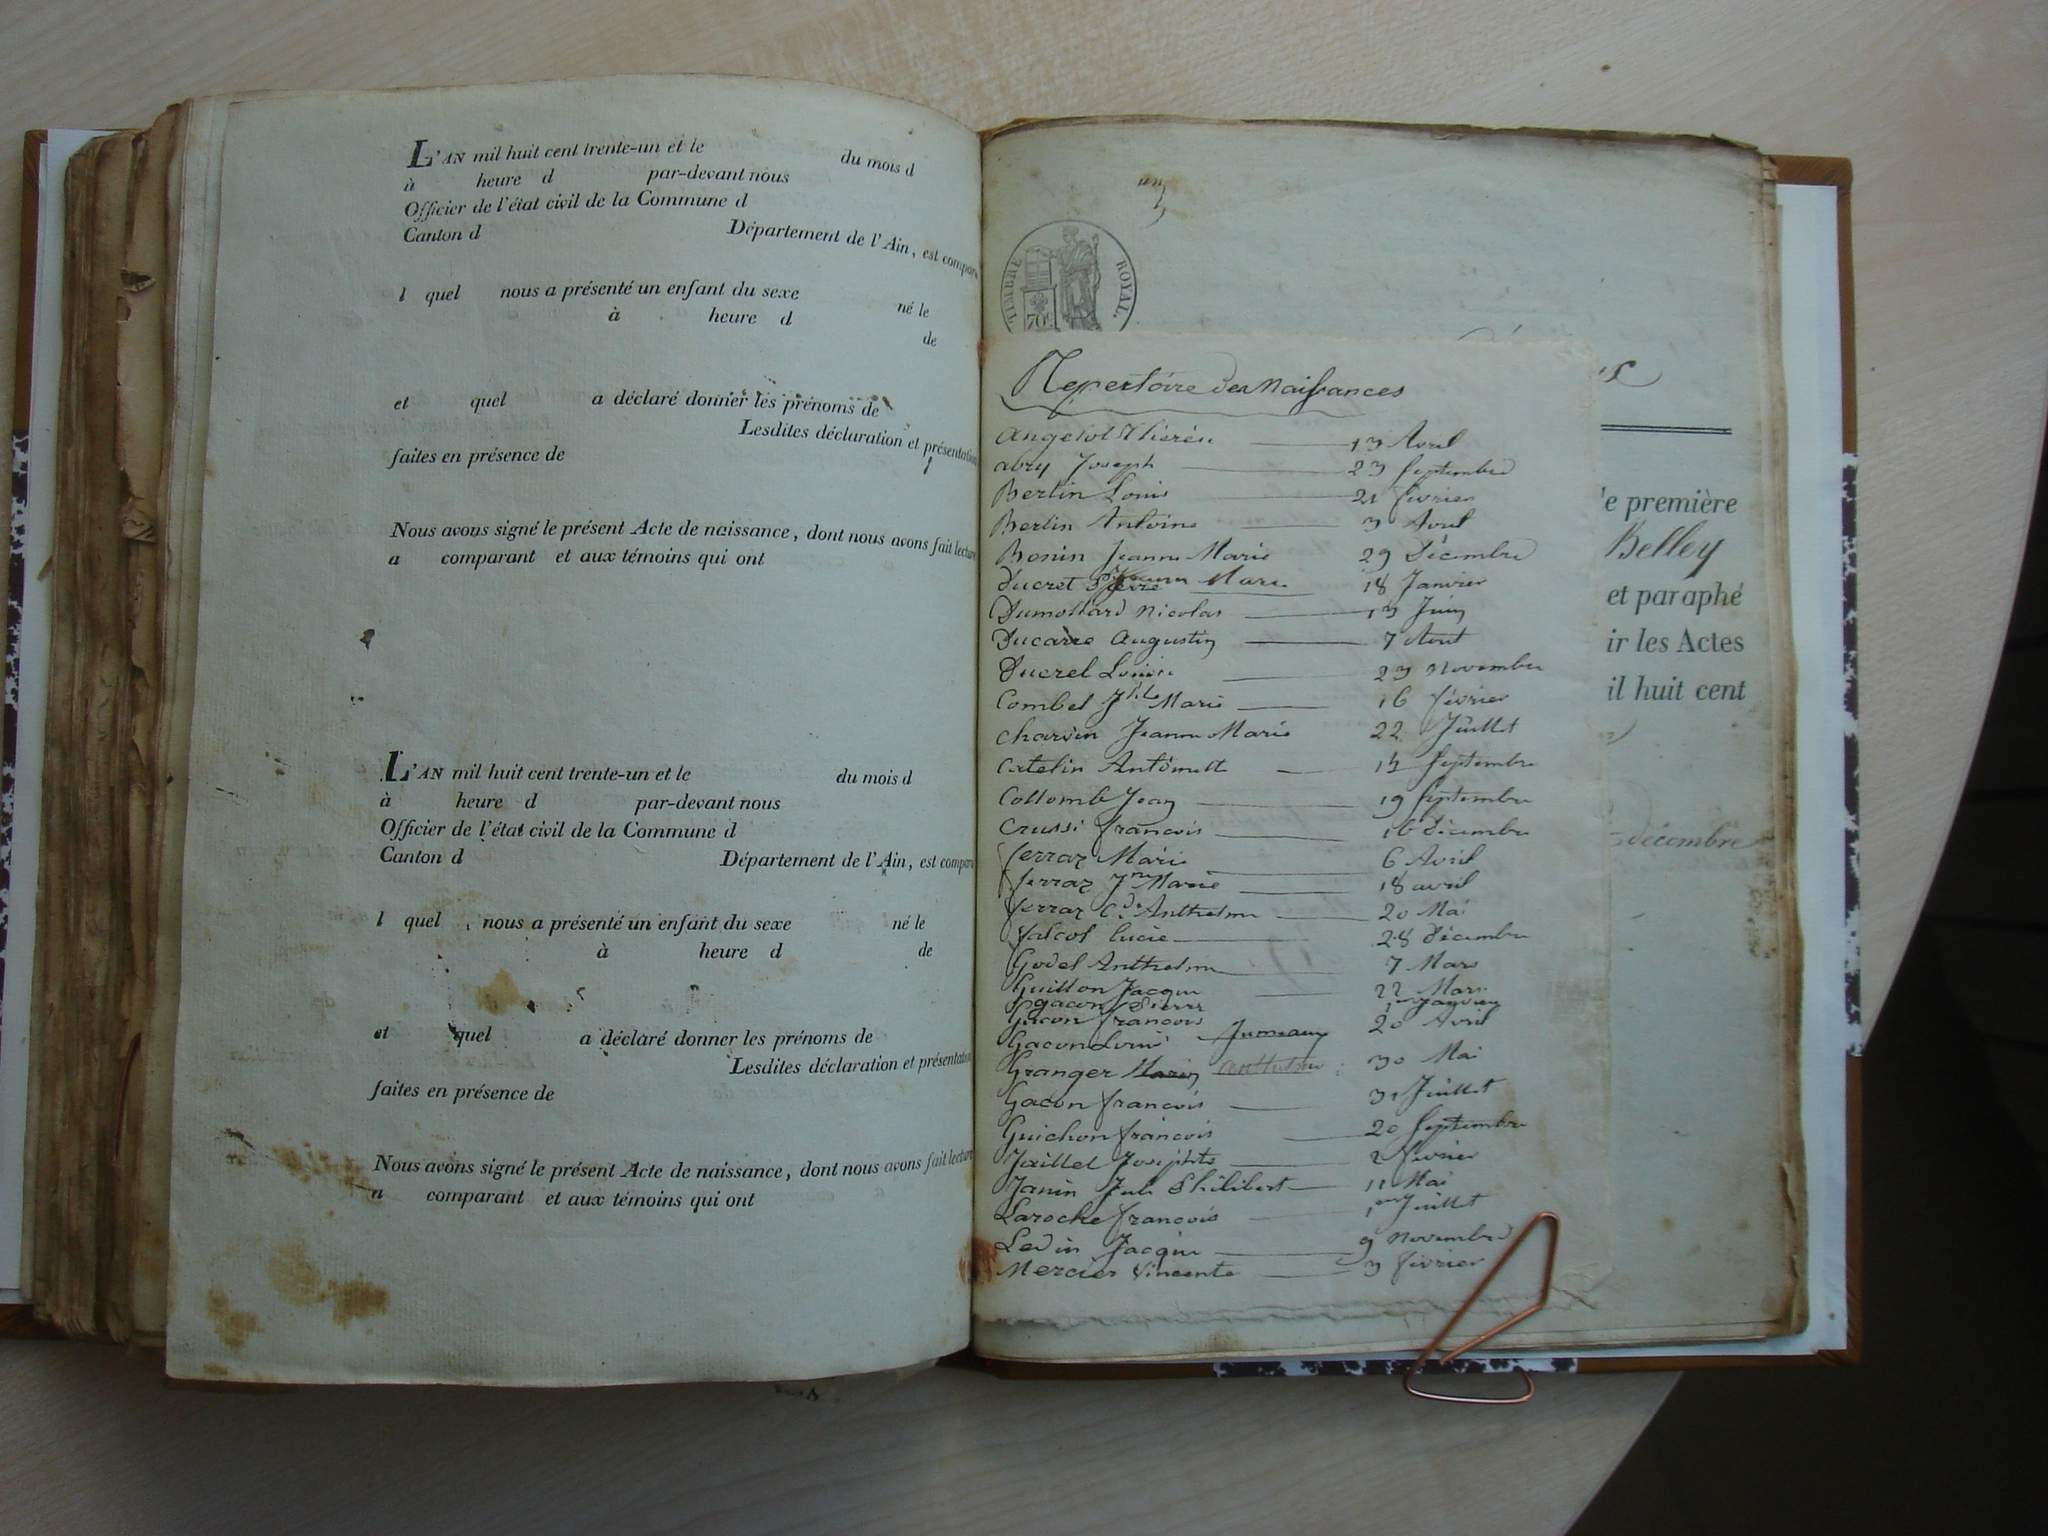 L'AN mil huit cent trente-un et le du mois d
à heure d par-devant nous
Officier de l'état civil de la Commune d
Canton d Département de l'Ain, est comparu
l quel nous a présenté un enfant du sexe né le
à heure d
de
et quel a déclaré donner les prénoms de
Lesdites déclaration et présentation
faites en présence de
Nous avons signé le présent Acte de naissance, dont nous avons fait lecture
a comparant et aux témoins qui ont
L'AN mil huit cent trente-un et le du mois d
à heure d par-devant nous
Officier de l'état civil de la Commune d
Canton d Département de l'Ain, est comparu
l quel nous a présenté un enfant du sexe né le
à heure d de
et quel a déclaré donner les prénoms de
Lesdites déclaration et présentation
faites en présence de
Nous avons signé le présent Acte de naissance, dont nous avons fait lecture
a comparant et aux témoins qui ont
TIMBRE ROYAL.
70c
Repertoire des Naissances
13 Avril
abry Joseph 23 Septembre
Bertin Louis 21 février
Bertin Antoine 3 Avril
Bonin Jeanne Marie 29 Décembre
Ducret Marie 18 Janvier
Dumollard Nicolas 13 Juin
Ducarre Augustin 7 Aout
Ducrel Louise 23 novembre
Combet Marie 16 février
Charvin Jeanne Marie 22 Juillet
Catelin Antoinette Septembre
Collomb Jean 19 Septembre
Crussi françois 16 Décembre
ferraz Marie 6 Avril
ferraz Jne Marie 18 avril
ferraz Anthelme 20 Mai
falcoz Lucie 28 Décembre
Godet Anthelme 7 Mars
Guillon Jacques 22 Mars
gacon Pierre 1er Janvier
Gacon françois 20 Avril
Gacon Louis Jumeaux
Granger Anthelme 30 Mai
Gacon françois 31 Juillet
Guichon françois 20 Septembre
Jaillet Josephte 2 février
Janin Philibert 11 Mai
Laroche françois 1er Juillet
Ledin Jacques 9 Novembre
Mercier Vincente 3 février
e première
Belley
et paraphé
ir les Actes
il huit cent
décembre